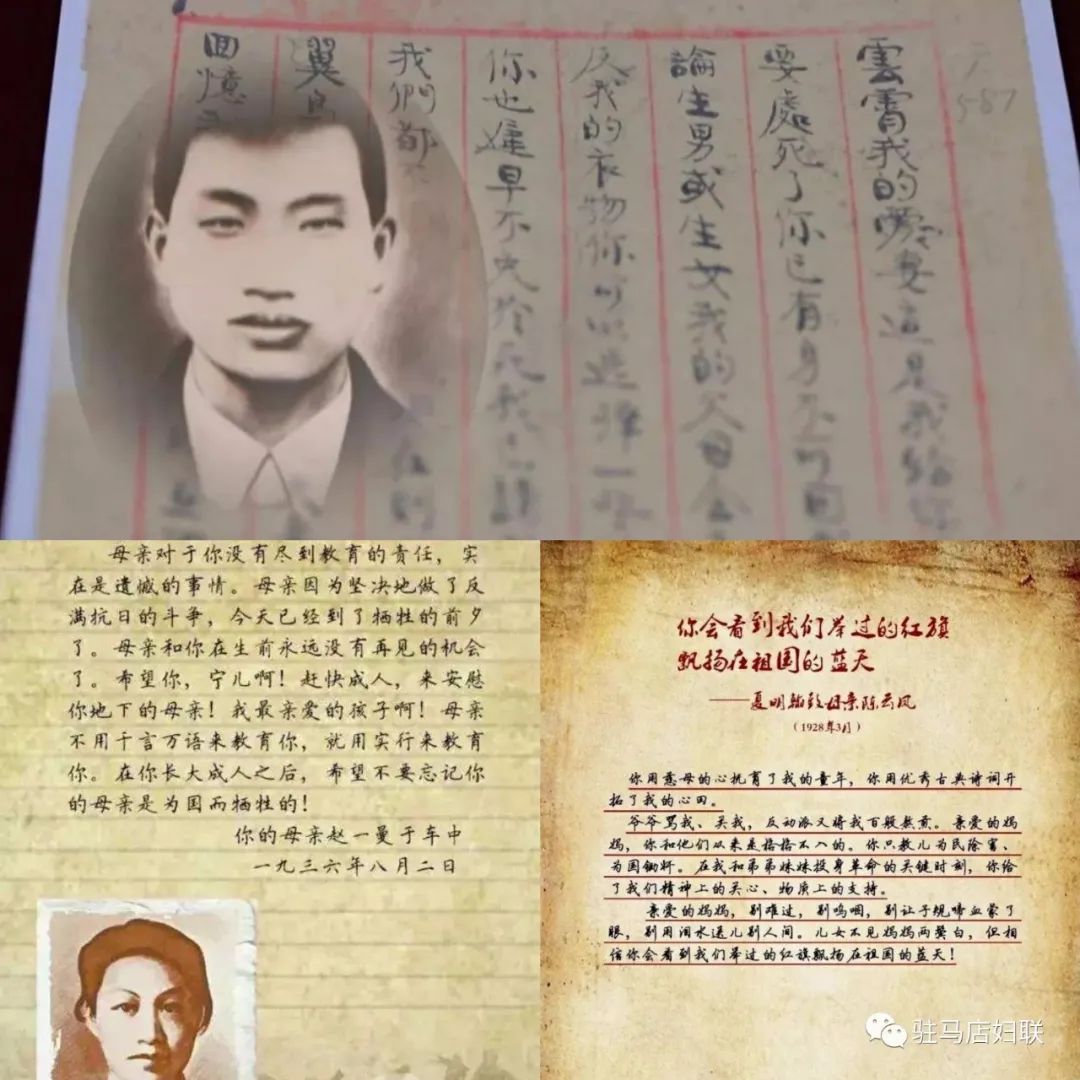 雲霄我的愛妻這是我給你
要處死了你已有身不可因
論生男或生女我的父母會
我的衣物你可以選擇一
你也遲早不免於死我已請
我們都
翼鳥
回憶
587
母亲对于你没有尽到教育的责任，实
在是遗憾的事情。母亲因为坚决地做了反
满抗日的斗争，今天已经到了牺牲的前夕
了。母亲和你在生前永远没有再见的机会
了。希望你，宁儿啊！赶快成人，来安慰
你地下的母亲！我最亲爱的孩子啊！母亲
不用千言万语来教育你，就用实行来教育
你。在你长大成人之后，希望不要忘记你
的母亲是为国而牺牲的！
你的母亲赵一曼于车中
一九三六年八月二日
你会看到我们举过的红旗
飘扬在祖国的蓝天
——夏明翰致母亲陈云凤
（1928年3月）
你用慈母的心抚育了我的童年，你用优秀古典诗词开
拓了我的心田。
爷爷骂我、关我，反动派又将我百般熬煎。亲爱的妈
妈，你和他们从来是格格不入的。你只教儿为民除害、
为国锄奸。在我和弟弟妹妹投身革命的关键时刻，你给
了我们精神上的关心、物质上的支持。
亲爱的妈妈，别难过，别呜咽，别让子规啼血蒙了
眼，别用泪水送儿别人间。儿女不见妈妈两鬓白，但相
信你会看到我们举过的红旗飘扬在祖国的蓝天！
驻马店妇联